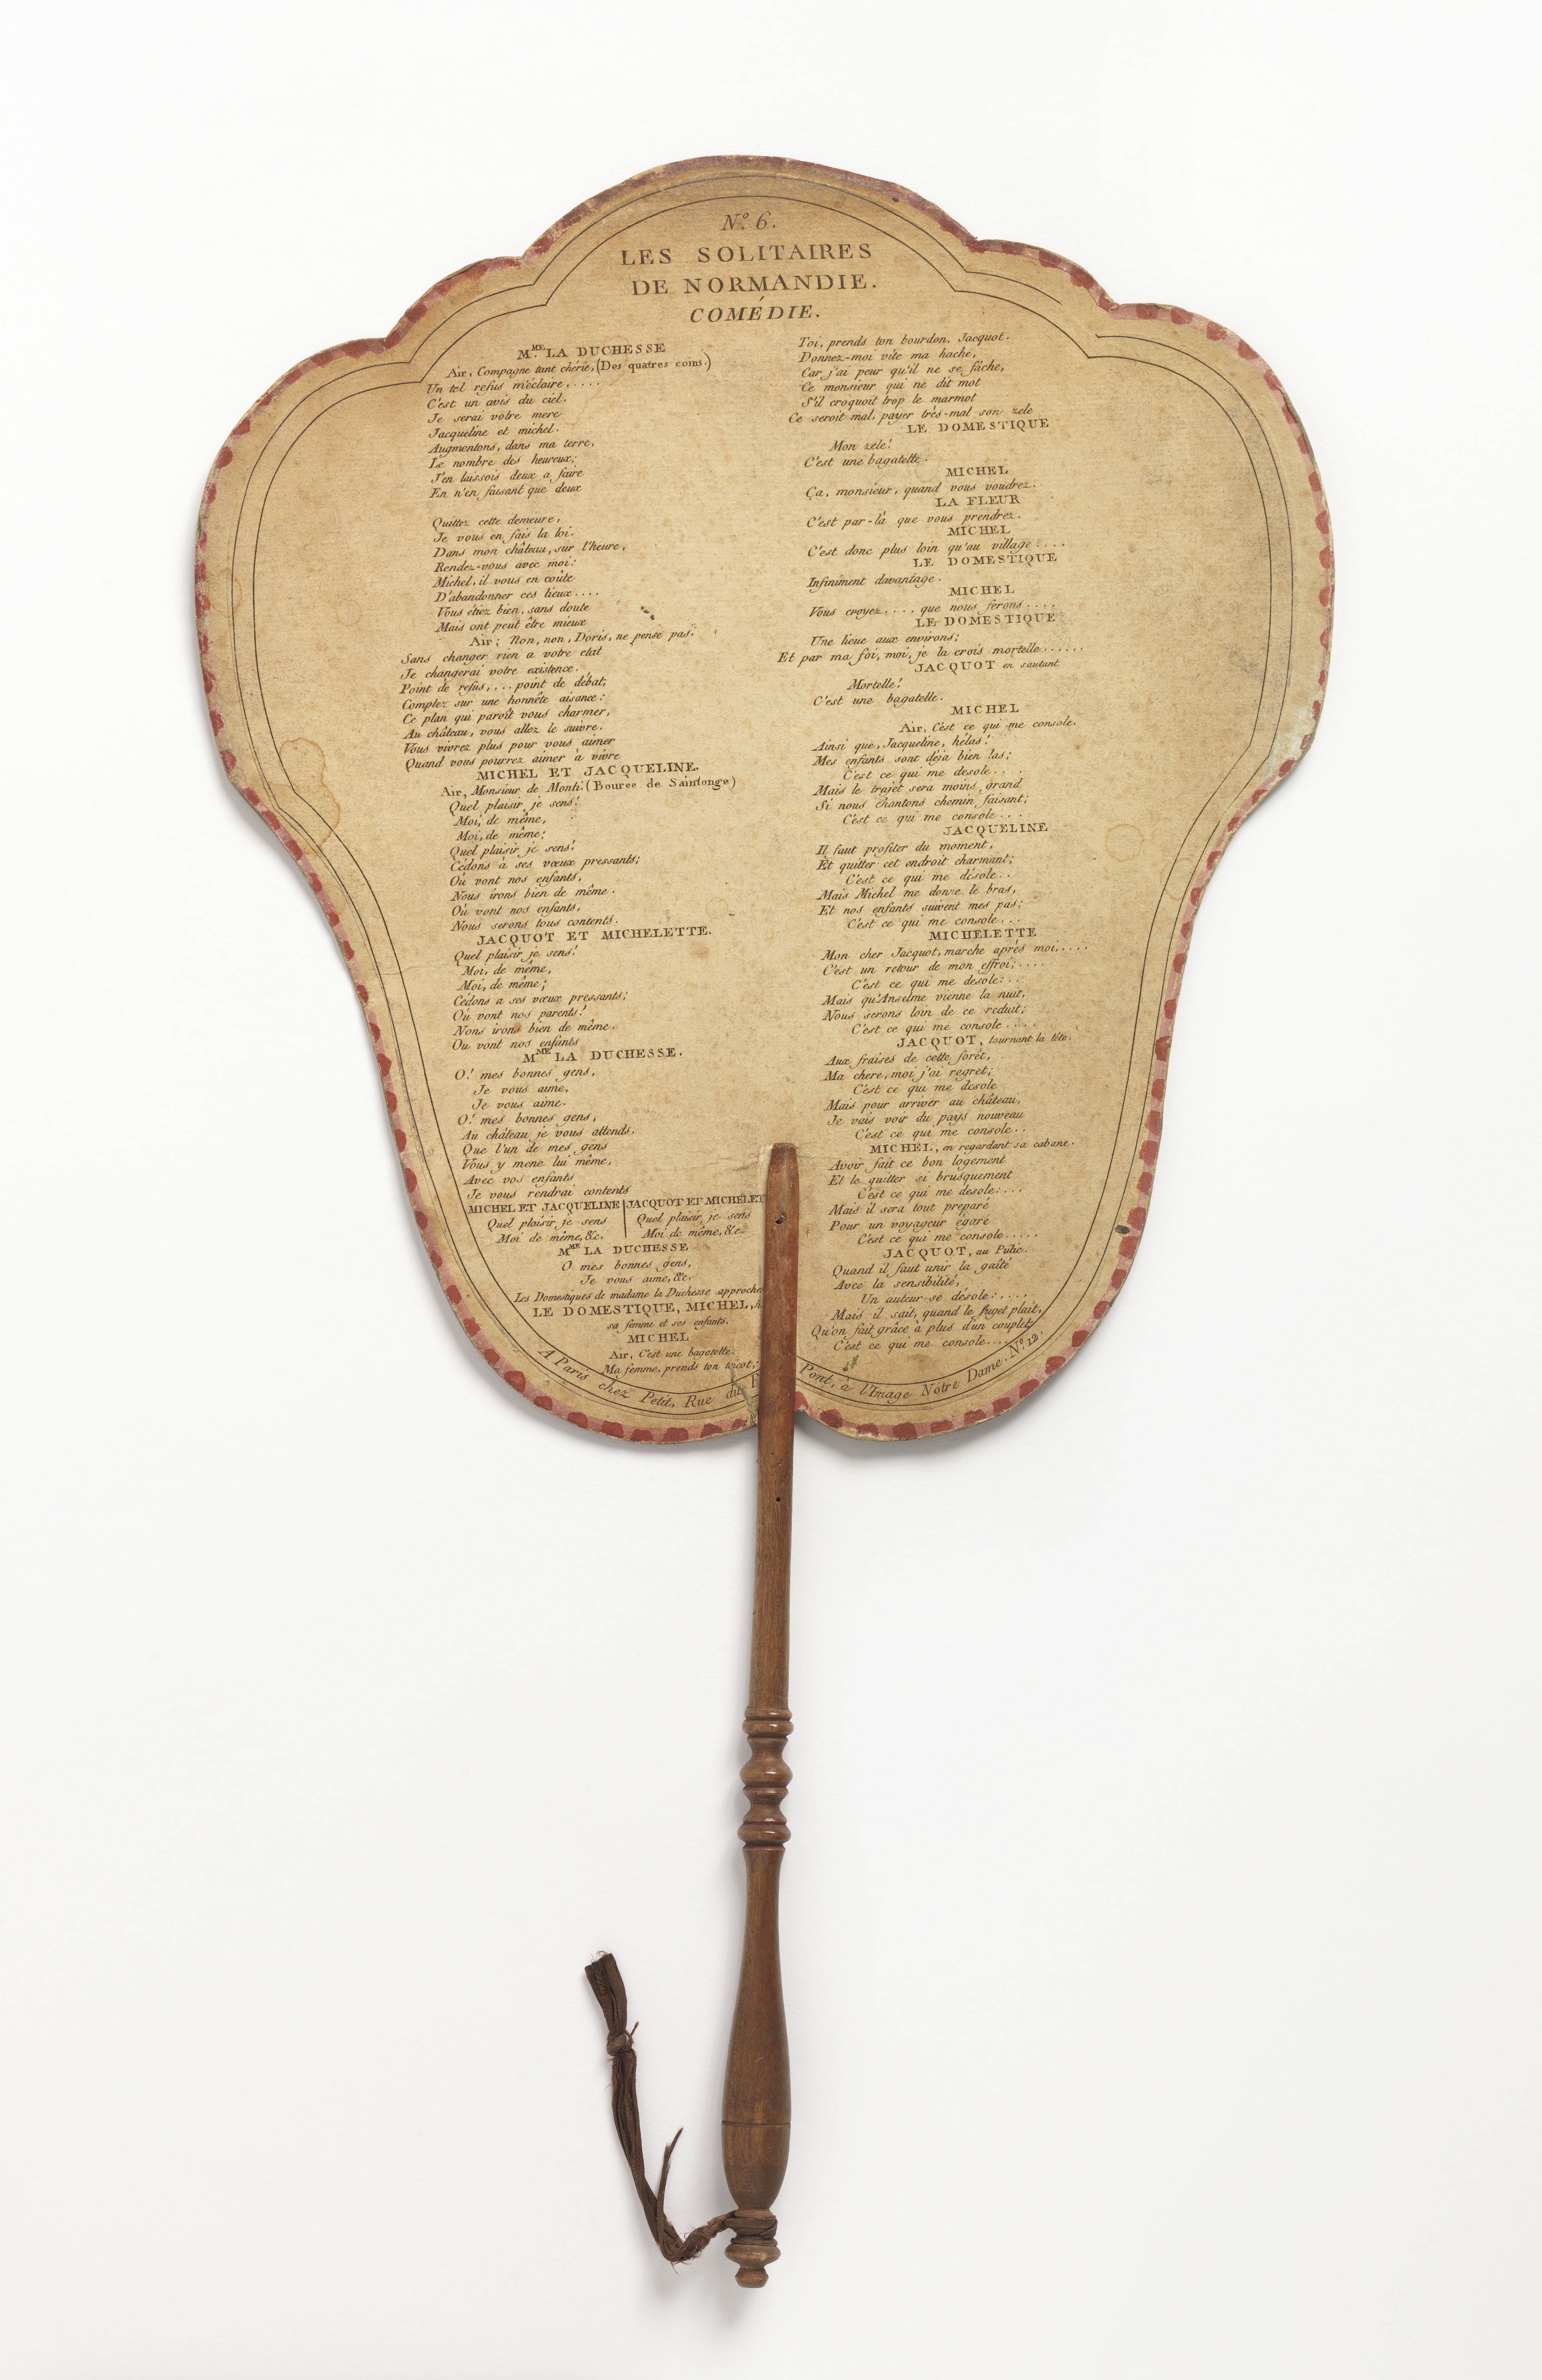 N.º 6.
LES SOLITAIRES
DE NORMANDIE.
COMÉDIE.
M.ME LA DUCHESSE
Air, Compagne tant chérie, (Des quatres coins.)
Un tel refus m'éclaire.....
C'est un avis du ciel.
Je serai votre mere
Jacqueline et michel.
Augmentons, dans ma terre,
Le nombre des heureux;
J'en laissois deux a faire
En n'en faisant que deux
Quittez cette demeure,
Je vous en fais la loi.
Dans mon château, sur l'heure,
Rendez-vous avec moi:
Michel, il vous en coûte
D'abandonner ces lieux....
Vous étiez bien, sans doute
Mais ont peut être mieux
Air; Non, non, Doris, ne pense pas.
Sans changer rien a votre etat
Je changerai votre existence.
Point de refus,... point de débat;
Comptez sur une honnête aisance:
Ce plan qui paroît vous charmer,
Au château, vous allez le suivre.
Vous vivrez plus pour vous aimer
Quand vous pourrez aimer à vivre
MICHEL ET JACQUELINE.
Air, Monsieur de Monti: (Bourée de Saintonge)
Quel plaisir je sens!
Moi, de même,
Moi, de même;
Quel plaisir je sens!
Cédons à ses vœux pressants;
Où vont nos enfants,
Nous irons bien de même.
Où vont nos enfants,
Nous serons tous contents.
JACQUOT ET MICHELETTE.
Quel plaisir je sens!
Moi, de même,
Moi, de même;
Cédons a ses vœux pressants;
Où vont nos parents!
Nons irons bien de même.
Ou vont nos enfants
MME LA DUCHESSE.
O! mes bonnes gens,
Je vous aime,
Je vous aime.
O! mes bonnes gens,
Au château je vous attends.
Que l'un de mes gens
Vous y mene lui même,
Avec vos enfants
Je vous rendrai contents
MICHEL ET JACQUELINE | JACQUOT ET MICHELET
Quel plaisir je sens | Quel plaisir je sens
Moi de même, &c. | Moi de même, &c.
MME LA DUCHESSE
O mes bonnes gens,
Je vous aime, &c.
Les Domestiques de madame la Duchesse approche
LE DOMESTIQUE, MICHEL,
sa femme et ses enfants.
MICHEL
Air, C'est une bagatelle.
Ma femme, prends ton tricot;
Toi, prends ton bourdon, Jacquot.
Donnez-moi vite ma hache,
Car j'ai peur qu'il ne se fâche,
Ce monsieur qui ne dit mot
S'il croquoit trop le marmot
Ce seroit mal, payer très-mal son zele
LE DOMESTIQUE
Mon zele!
C'est une bagatelle.
MICHEL
Ça, monsieur, quand vous voudrez.
LA FLEUR
C'est par-là que vous prendrez.
MICHEL
C'est donc plus loin qu'au village....
LE DOMESTIQUE
Infiniment davantage.
MICHEL
Vous croyez.... que nous ferons....
LE DOMESTIQUE
Une lieue aux environs;
Et par ma foi, moi, je la crois mortelle......
JACQUOT en sautant
Mortelle!
C'est une bagatelle.
MICHEL
Air, C'est ce qui me console.
Ainsi que, Jacqueline, hélas!
Mes enfants sont déja bien las;
C'est ce qui me desole...
Mais le trajet sera moins grand
Si nous chantons chemin faisant;
C'est ce qui me console...
JACQUELINE
Il faut profiter du moment,
Et quitter cet endroit charmant;
C'est ce qui me désole..
Mais Michel me donne le bras,
Et nos enfants suivent mes pas;
C'est ce qui me console...
MICHELETTE
Mon cher Jacquot, marche après moi.....
C'est un retour de mon effroi;....
C'est ce qui me desole:..
Mais qu'Anselme vienne la nuit,
Nous serons loin de ce reduit;
C'est ce qui me console....
JACQUOT, tournant la tête.
Aux fraises de cette forêt,
Ma chere, moi j'ai regret;
C'est ce qui me desole
Mais pour arriver au château,
Je vais voir du pays nouveau
C'est ce qui me console..
MICHEL, en regardant sa cabane.
Avoir fait ce bon logement
Et le quitter si brusquement
C'est ce qui me desole:...
Mais il sera tout préparé
Pour un voyageur égaré
C'est ce qui me console.....
JACQUOT, au Pulic.
Quand il faut unir la gaîté
Avec la sensibilité,
Un auteur se désole:....
Mais il sait, quand le sujet plait,
Qu'on fait grâce à plus d'un couplet;
C'est ce qui me console....
A Paris chez Petit, Rue du P Pont, à l'Image Nôtre Dame. N.º 12.